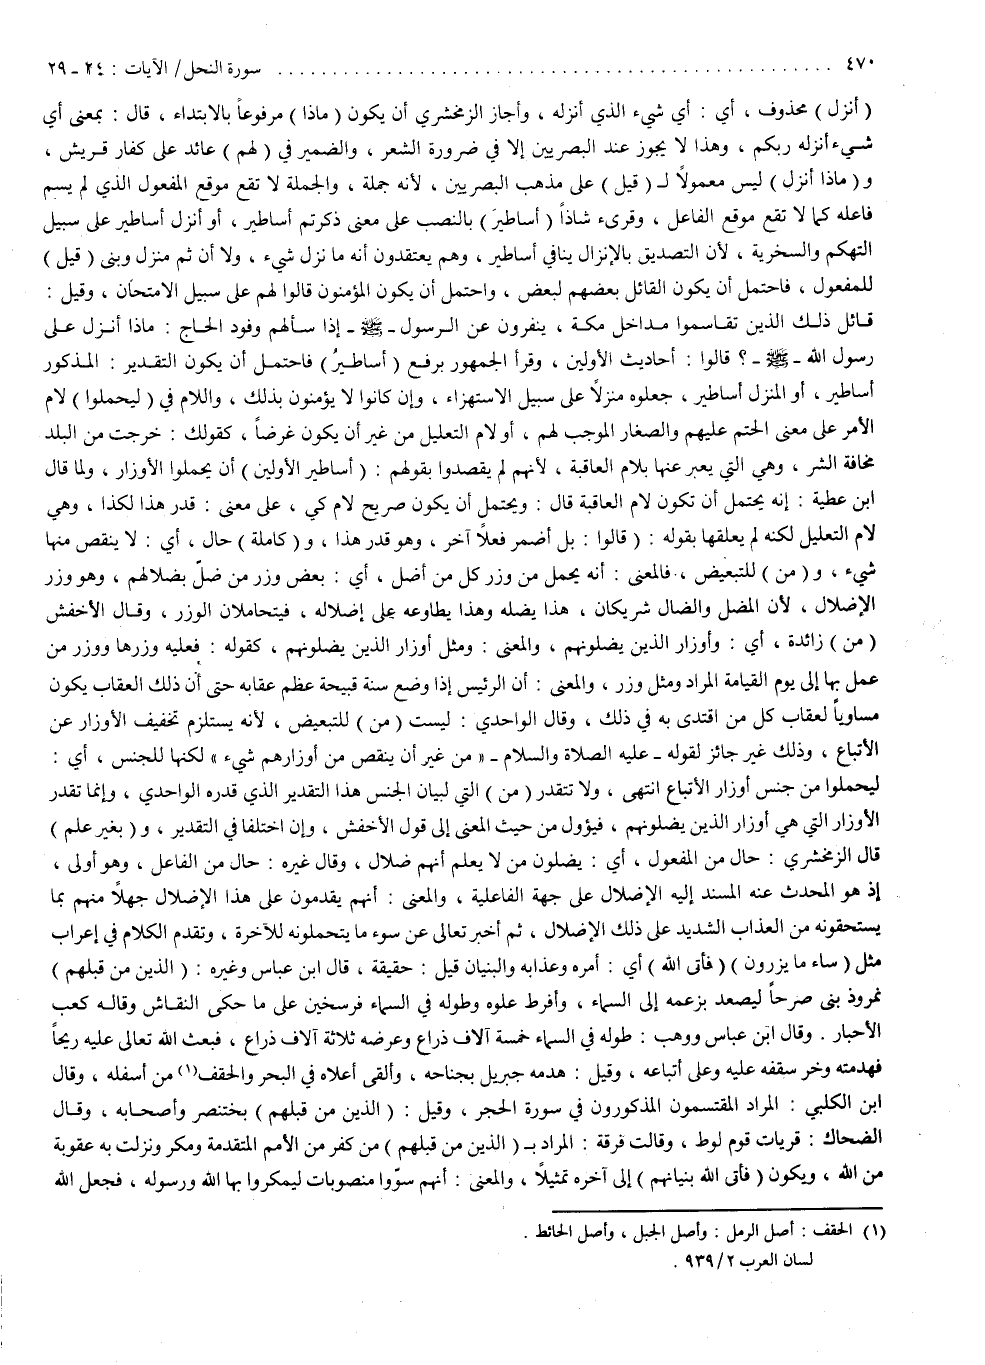 ٤٧٠ ........................................................ سورة النحل / الآيات : ٢٤ - ٢٩
( أنزل ) محذوف ، أي : أي شيء الذي أنزله ، وأجاز الزمخشري أن يكون ( ماذا ) مرفوعاً بالابتداء ، قال : بمعنى أي
شيء أنزله ربكم ، وهذا لا يجوز عند البصريين إلا في ضرورة الشعر ، والضمير في ( لهم ) عائد على كفار قريش ،
و ( ماذا أنزل ) ليس معمولاً لـ ( قيل ) على مذهب البصريين ، لأنه جملة ، والجملة لا تقع موقع المفعول الذي لم يسم
فاعله كما لا تقع موقع الفاعل ، وقرىء شاذاً ( أساطيرَ ) بالنصب على معنى ذكرتم أساطير ، أو أنزل أساطير على سبيل
التهكم والسخرية ، لأن التصديق بالإنزال ينافي أساطير ، وهم يعتقدون أنه ما نزل شيء ، ولا أن ثم منزل وبنى ( قيل )
للمفعول ، فاحتمل أن يكون القائل بعضهم لبعض ، واحتمل أن يكون المؤمنون قالوا لهم على سبيل الامتحان ، وقيل :
قائل ذلك الذين تقاسموا مداخل مكة ، ينفرون عن الرسول - ﷺ - إذا سألهم وفود الحاج : ماذا أنزل على
رسول الله - ﷺ - ؟ قالوا : أحاديث الأولين ، وقرأ الجمهور برفع ( أساطيرُ ) فاحتمل أن يكون التقدير : المذكور
أساطير ، أو المنزل أساطير ، جعلوه منزلاً على سبيل الاستهزاء ، وإن كانوا لا يؤمنون بذلك ، واللام في ( ليحملوا ) لام
الأمر على معنى الحتم عليهم والصغار الموجب لهم ، أو لام التعليل من غير أن يكون غرضاً ، كقولك : خرجت من البلد
مخافة الشر ، وهي التي يعبر عنها بلام العاقبة ، لأنهم لم يقصدوا بقولهم : ( أساطير الأولين ) أن يحملوا الأوزار ، ولما قال
ابن عطية : إنه يحتمل أن تكون لام العاقبة قال : ويحتمل أن يكون صريح لام كي ، على معنى : قدر هذا لكذا ، وهي
لام التعليل لكنه لم يعلقها بقوله : ( قالوا : بل أضمر فعلاً آخر ، وهو قدر هذا ، و ( كاملة ) حال ، أي : لا ينقص منها
شيء ، و ( من ) للتبعيض ، فالمعنى : أنه يحمل من وزر كل من أضل ، أي : بعض وزر من ضلّ بضلالهم ، وهو وزر
الإضلال ، لأن المضل والضال شريكان ، هذا يضله وهذا يطاوعه على إضلاله ، فيتحاملان الوزر ، وقال الأخفش
( من ) زائدة ، أي : وأوزار الذين يضلونهم ، والمعنى : ومثل أوزار الذين يضلونهم ، كقوله : فعليه وزرها ووزر من
عمل بها إلى يوم القيامة المراد ومثل وزر ، والمعنى : أن الرئيس إذا وضع سنة قبيحة عظم عقابه حتى أن ذلك العقاب يكون
مساوياً لعقاب كل من اقتدى به في ذلك ، وقال الواحدي : ليست ( من ) للتبعيض ، لأنه يستلزم تخفيف الأوزار عن
الأتباع ، وذلك غير جائز لقوله - عليه الصلاة والسلام - « من غير أن ينقص من أوزارهم شيء » لكنها للجنس ، أي :
ليحملوا من جنس أوزار الأتباع انتهى ، ولا تتقدر ( من ) التي لبيان الجنس هذا التقدير الذي قدره الواحدي ، وإنما تقدر
الأوزار التي هي أوزار الذين يضلونهم ، فيؤول من حيث المعنى إلى قول الأخفش ، وإن اختلفا في التقدير ، و ( بغير علم )
قال الزمخشري : حال من المفعول ، أي : يضلون من لا يعلم أنهم ضلال ، وقال غيره : حال من الفاعل ، وهو أولى ،
إذ هو المحدث عنه المسند إليه الإضلال على جهة الفاعلية ، والمعنى : أنهم يقدمون على هذا الإضلال جهلاً منهم بما
يستحقونه من العذاب الشديد على ذلك الإضلال ، ثم أخبر تعالى عن سوء ما يتحملونه للآخرة ، وتقدم الكلام في إعراب
مثل ( ساء ما يزرون ) ( فأتى الله ) أي : أمره وعذابه والبنيان قيل : حقيقة ، قال ابن عباس وغيره : ( الذين من قبلهم )
نمروذ بنى صرحاً ليصعد بزعمه إلى السماء ، وأفرط علوه وطوله في السماء فرسخين على ما حكى النقاش وقاله كعب
الأحبار . وقال ابن عباس ووهب : طوله في السماء خمسة آلاف ذراع وعرضه ثلاثة آلاف ذراع ، فبعث الله تعالى عليه ريحاً
فهدمته وخر سقفه عليه وعلى أتباعه ، وقيل : هدمه جبريل بجناحه ، وألقى أعلاه في البحر والحقف(١) من أسفله ، وقال
ابن الكلبي : المراد المقتسمون المذكورون في سورة الحجر ، وقيل : ( الذين من قبلهم ) بختنصر وأصحابه ، وقال
الضحاك : قريات قوم لوط ، وقالت فرقة : المراد بـ ( الذين من قبلهم ) من كفر من الأمم المتقدمة ومكر ونزلت به عقوبة
من الله ، ويكون ( فأتى الله بنيانهم ) إلى آخره تمثيلاً ، والمعنى : أنهم سوّوا منصوبات ليمكروا بها الله ورسوله ، فجعل الله
(١) الحقف : أصل الرمل : وأصل الجبل ، وأصل الحائط .
لسان العرب ٢/ ٩٣٩ .